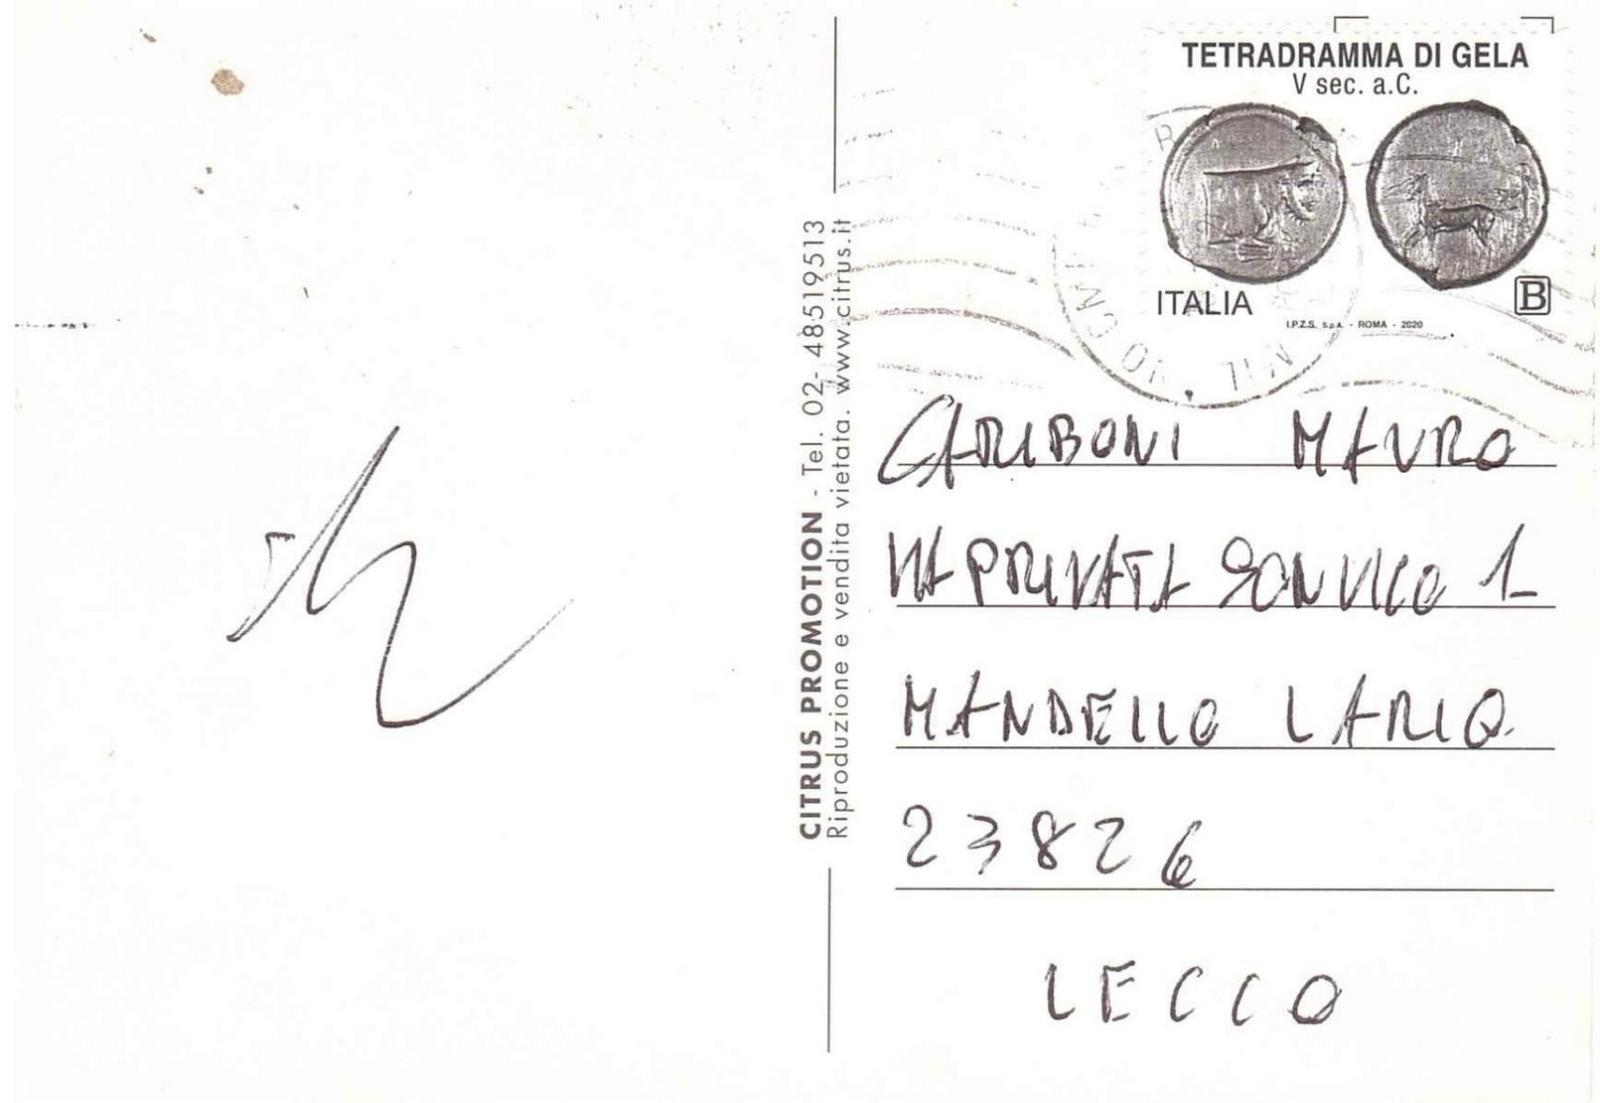 TETRADRAMMA DI GELA
V sec. a.C.
ITALIA
B
I.P.Z.S. S.p.A. - ROMA - 2020
CITRUS PROMOTION - Tel. 02- 48519513
Riproduzione e vendita vietata. www.citrus.it
CARIBONI MAURO
VIA PRIVATA SONVICO 1
MANDELLO LARIO
23826
LECCO